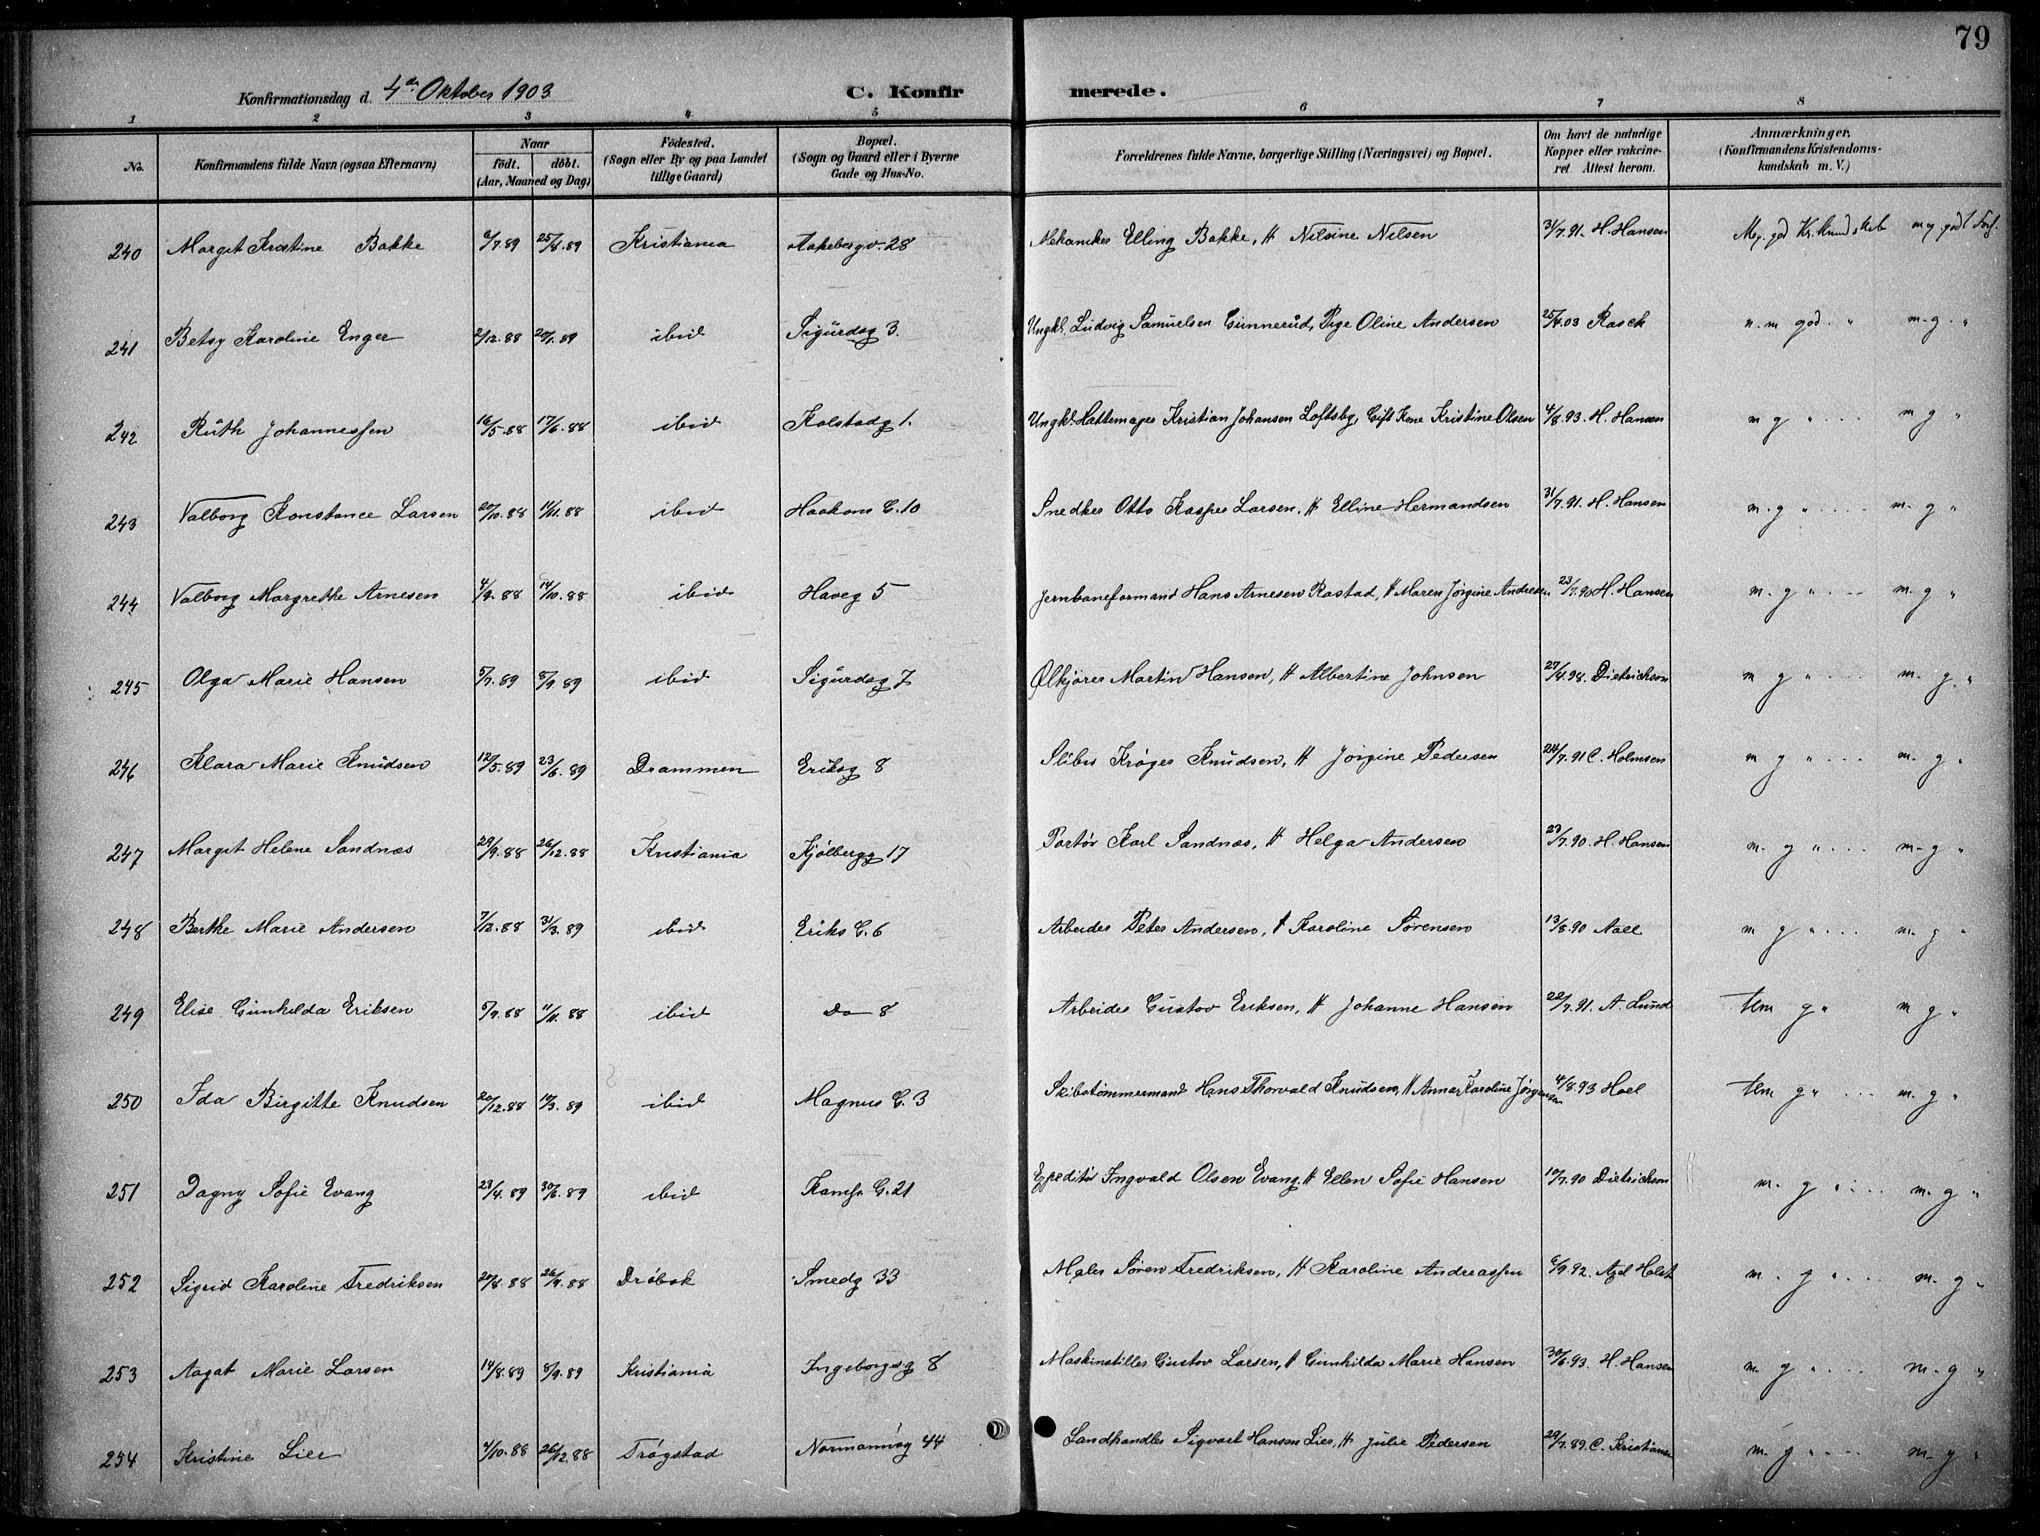 79
Konfirmationsdag d. 4de Oktober 1903 C. Konfirmerede.
1 2 3 4 5 6 7 8
No. Konfirmandens fulde Navn (ogsaa Efternavn) Naar født. døbt. (Aar, Maaned og Dag) Fødested. (Sogn eller By og paa Landet tillige Gaard) Bopæl. (Sogn og Gaard eller i Byerne Gade og Hus-No. Forældrenes fulde Navne, borgerlige Stilling (Næringsvei) og Bopæl. Om havt de naturlige Kopper eller vakcineret Attest herom. Anmærkninger. (Konfirmandens Kristendomskundskab m. V.)
240 Margit Kristine Bakke 6/7.89 25/8.89 Kristiania Aakebergv. 28 Mekaniker Elling Bakke, H Nilsine Nilsen 31/7.91. H. Hansen Meg. god Kr. Kundskab meg. godt Forh.
241 Betsy Karoline Enger 2/12.88 20/1.89 ibid Sigurdsg 3. Ungkl. Ludvig Samuelsen Gunnerud, Pige Oline Andersen 25/4.03 Rasch n.m god. " m.g. "
242 Ruth Johannessen 16/5.88 17/6.88 ibid Kolstadg 1. Ungkl. Hattemager Kristian Johansen Loftsby, Gift Kone Kristine Olsen 4/8.93. H. Hansen m g " m g "
243 Valborg Konstance Larsen 20/10.88 11/11.88 ibid Haakons G. 10 Snedker Otto Kasper Larsen, H Elline Hermandsen 31/7.91. H. Hansen m. g " m. g "
244 Valborg Margrethe Arnesen 4/9.88 14/10.88 ibid Haveg 5 Jernbaneformand Hans Arnesen Rastad, H Maren Jørgine Andresen 23/7.90 H. Hansen m. g " m. g "
245 Olga Marie Hansen 5/7.89 8/9.89 ibid Sigurdsg 7 Ølkjører Martin Hansen, H Albertine Johnsen 27/4.98. Dietrichson m g " m. g. "
246 Klara Marie Knudsen 12/5.89 23/6.89 Drammen Eriksg 8 Sliber Krøger Knudsen, H Jørgine Pedersen 24/7.91 C. Holmsen m g " m. g "
247 Margit Helene Sandnæs 29/9.88 26/12.88 Kristiania Kjølbergg 17 Portør Karl Sandnæs, H Helga Andersen 23/7.90. H. Hansen m. g " m. g "
248 Berthe Marie Andersen 7/12.88 31/3.89 ibid Eriks G. 6 Arbeider Peter Andersen, H Karoline Sørensen 13/8.90 m g " m. g "
249 Elise Gunhilda Eriksen 5/9.88 11/11.88 ibid Do 8 Arbeider Gustav Eriksen, H Johanne Hansen 22/7.91. A. Lund Tem g " m g "
250 Ida Birgitte Knudsen 20/12.88 ibid Magnus G. 3 Skibstømmermand Hans Thorvald Knudsen, H Anna Karoline Jørgensen 4/8.93 Hoel Tem g " m. g "
251 Dagny Sofie Evang 23/4.89 30/6.89 ibid Kampr G. 21 Expeditør Ingvald Olsen Evang, H Ellen Sofie Hansen 10/7.90 Dietrichson m. g " m. g "
252 Sigrid Karoline Fredriksen 20/8.88 26/9.88 Drøbak Smedg 33 Maler Søren Fredriksen, H Karoline Andreassen 6/9.92. Axel Holst m. g " m. g "
253 Aagat Marie Larsen 14/8.89 8/9.89 Kristiania Ingeborgsg 8 Maskinstiller Gustav Larsen, H Gunhilda Marie Hansen 30/6.93. H. Hansen m. g " m. g "
254 Kristine Lier 4/10.88 26/12.88 Trøgstad Normannsg 44 Landhandler Sigvart Hansen Lier, H Julie Pedersen 29/7.89. C. Kristiansen m. g " m. g "